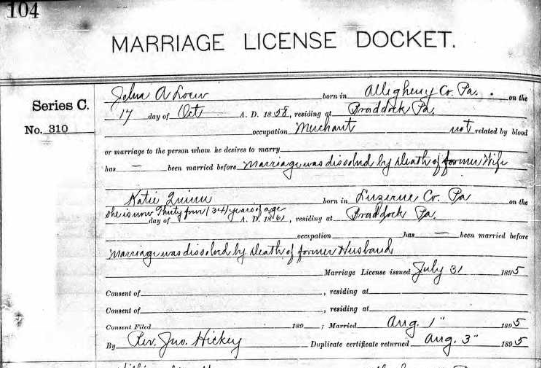 104
MARRIAGE LICENSE DOCKET.
Series C.
No. 310
John A born in Allegheny Co. Pa. on the
17 day of Oct A. D. 1858, residing at Braddock Pa.
occupation Merchant not related by blood
or marriage to the person whom he desires to marry
has — been married before Marriage was dissolved by Death of former Wife
Katie Quinn born in Luzerne Co. Pa on the
she is now Thirty four (34) years of age
day of A. D. 1861, residing at Braddock Pa.
occupation has — been married before
Marriage was dissolved by Death of former Husband
Marriage License issued July 31 1895
Consent of , residing at
Consent of , residing at
Consent Filed 190 ; Married Aug. 1" 1905
By Rev. Jno. Hickey Duplicate certificate returned Aug. 3" 1895